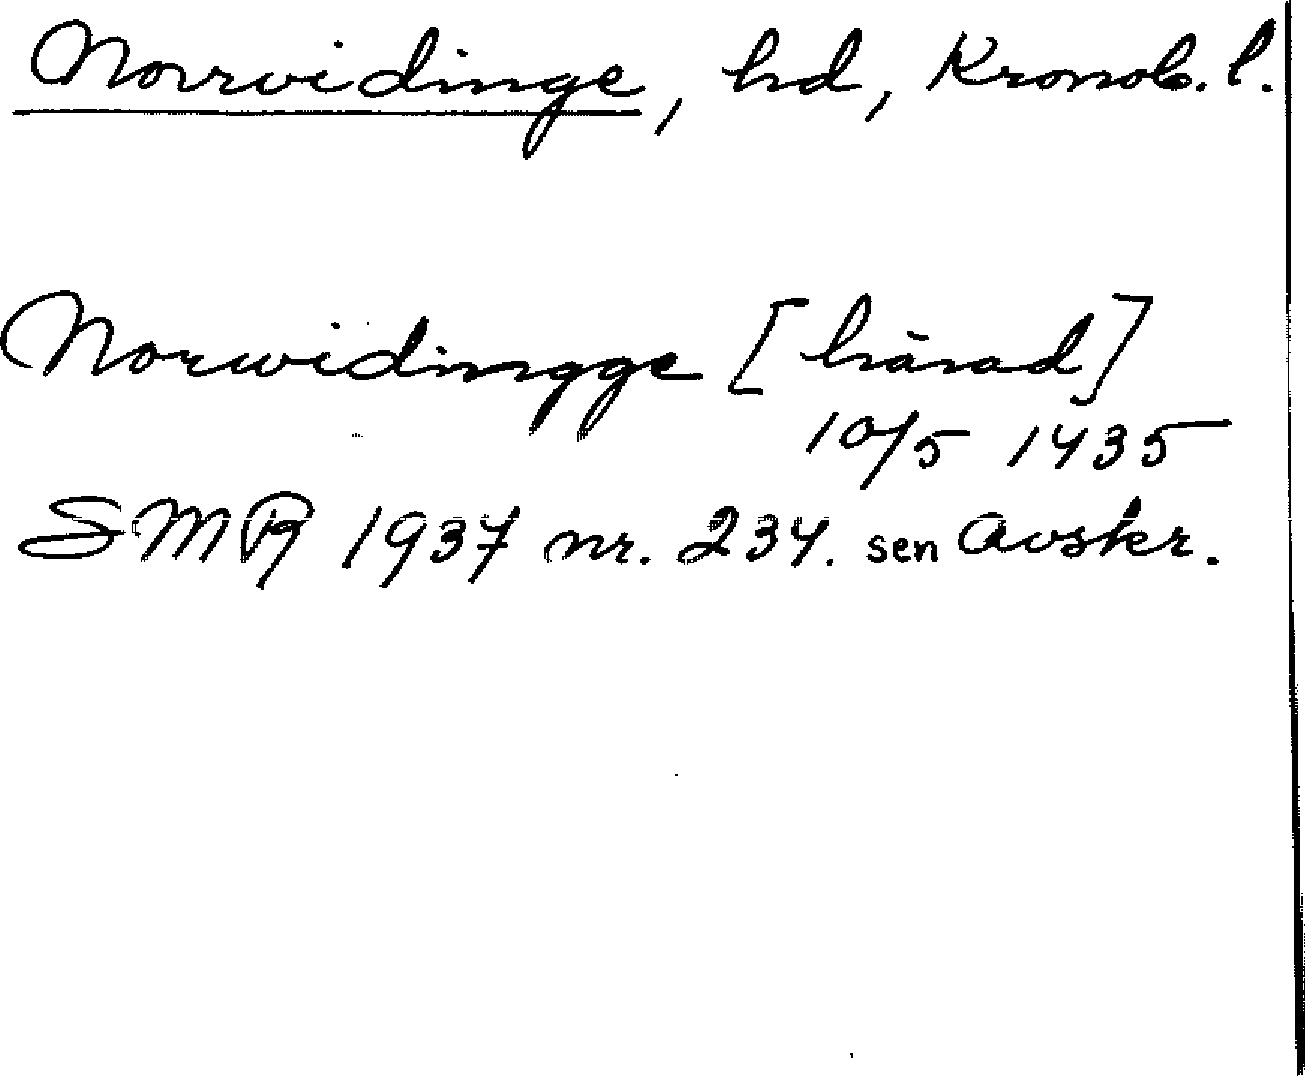 Norrvidinge, hd, Kronob. l.
Norwidingge [härad]
10/5 1435
SMR 1937 nr. 234. sen Avskr.